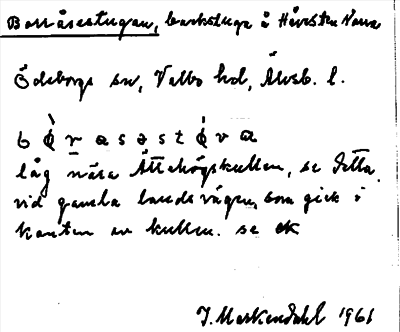 Borråsestugan, backstuga å Håvesten Norra
Ödeborgs sn, Valbo hd, Älvsb. l.
b ò̧ r a s ə s t ó̧ v a
låg nära Ättehögskullen, se detta,
vid gamla landsvägen, som gick i
kanten av kullen. se ek
J. Markendahl 1961